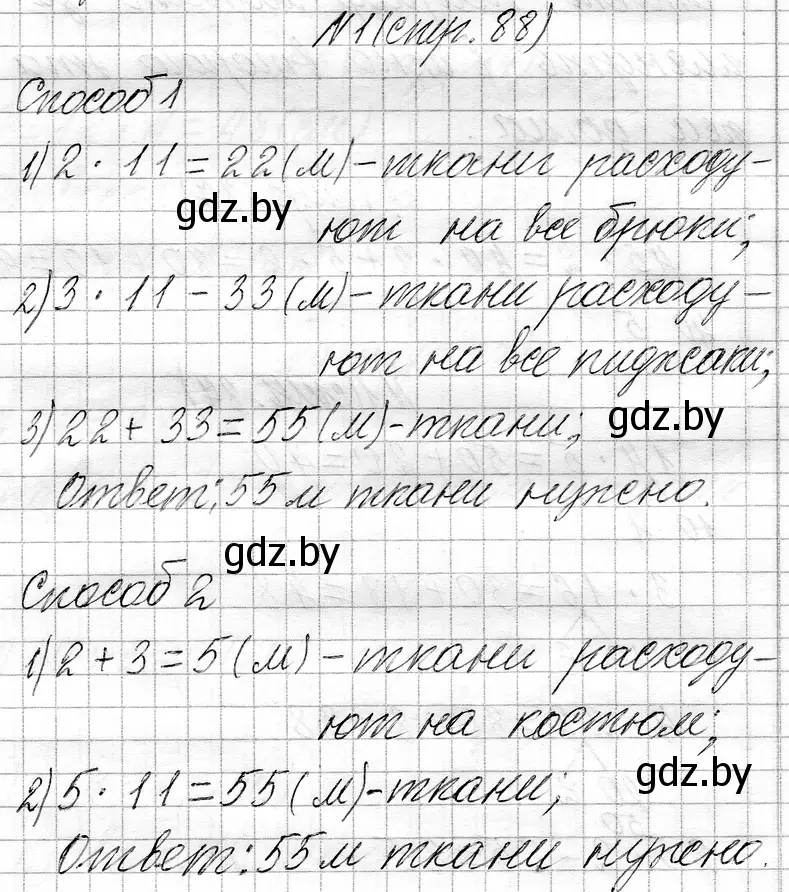 №1 (стр. 88)
Способ 1
1) 2 · 11 = 22 (м) - ткани расходу-
gdz.by
ют на все брюки;
2) 3 · 11 - 33 (м) - ткани расходу-
ют на все пиджаки;
3) 22 + 33 = 55 (м) - ткани;
gdz.by
Ответ: 55 м ткани нужно.
gdz.by
Способ 2
1) 2 + 3 = 5 (м) - ткани расходу-
ют на костюм;
gdz.by
2) 5 · 11 = 55 (м) - ткани;
Ответ: 55 м ткани нужно.